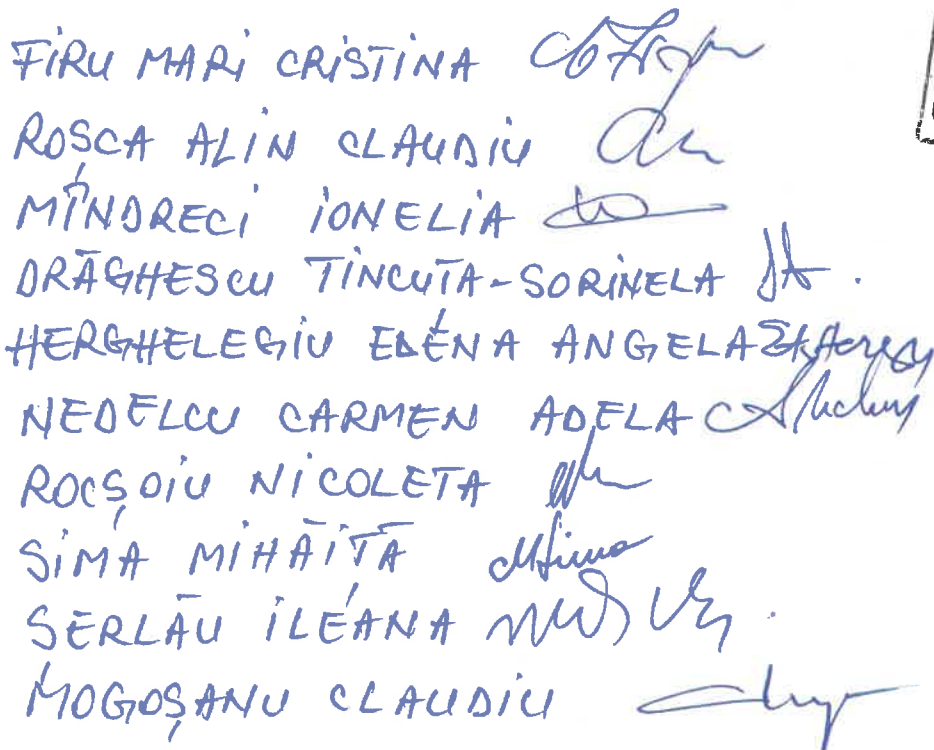 FIRU MARI CRISTINA
ROȘCA ALIN CLAUDIU
MÎNDRECI IONELIA
DRĂGHESCU TINCUȚA-SORINELA
HERGHELEGIU ELENA ANGELA
NEDELCU CARMEN ADELA
ROCȘOIU NICOLETA
SIMA MIHĂIȚĂ
SERLĂU ILEANA
MOGOȘANU CLAUDIU